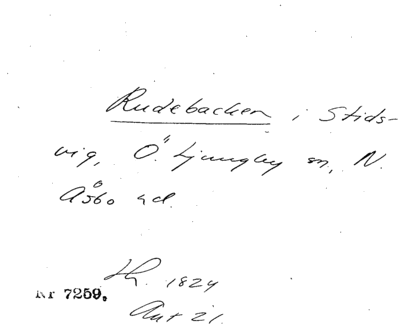 Rudebacken i Stids-
vig, Ö. Ljungby sn, N.
Åsbo hd.
1824
Nr 7259.
Ant 21.